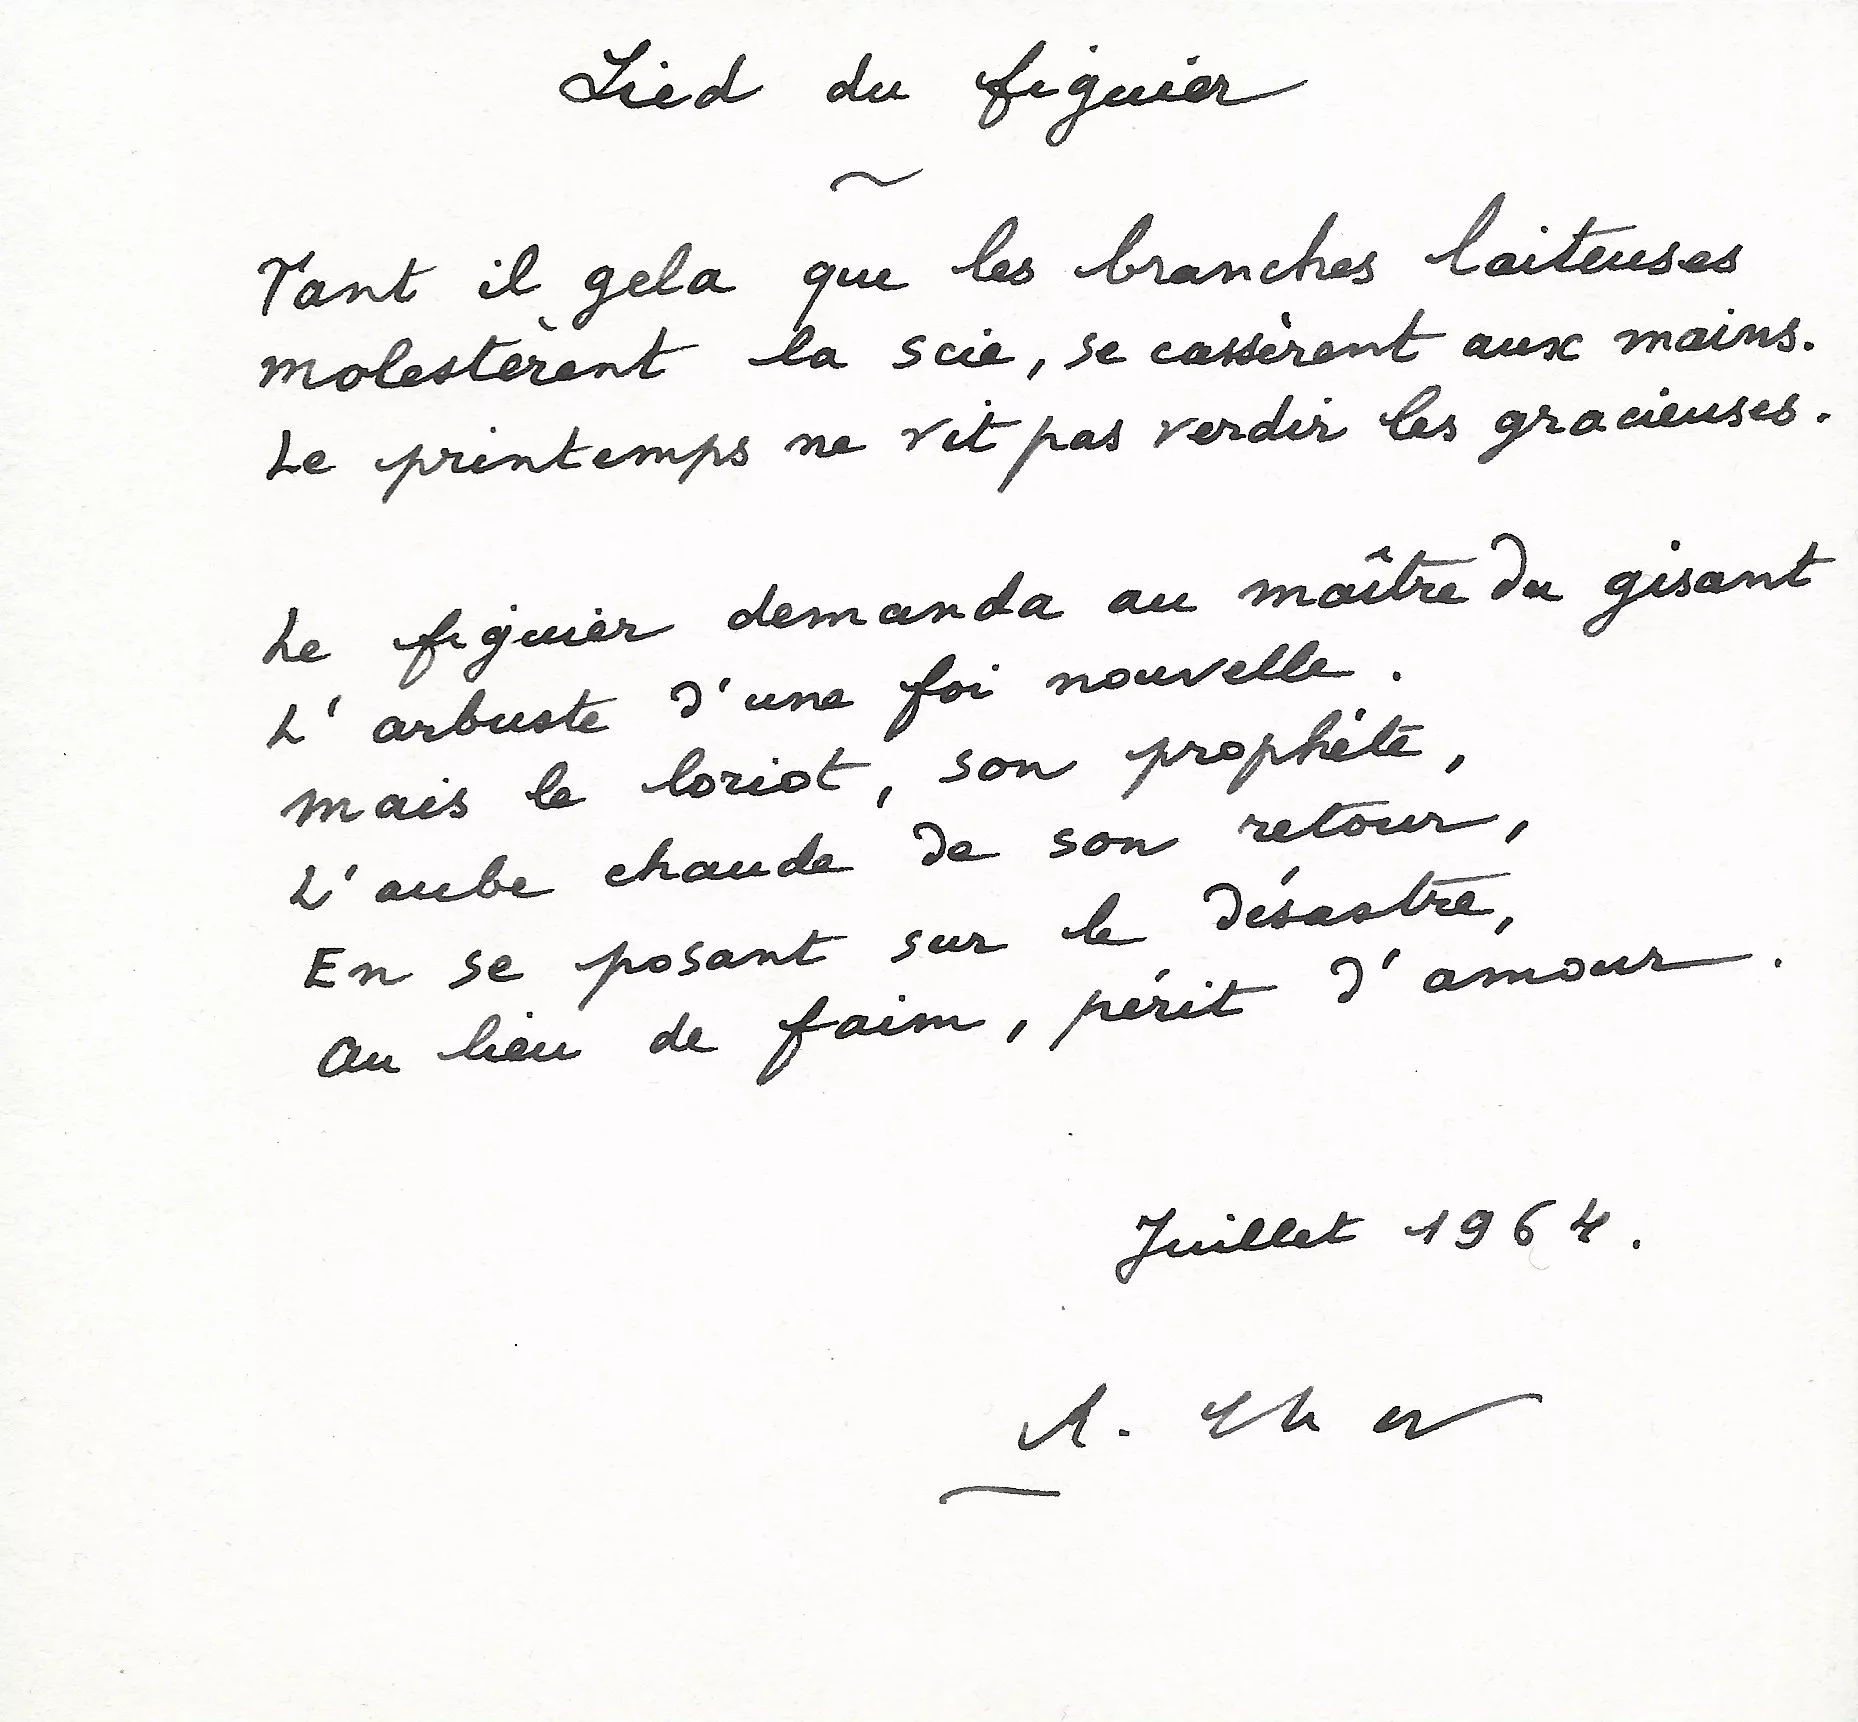 Lied du figuier
~
Tant il gela que les branches laiteuses
molestèrent la scie, se cassèrent aux mains.
Le printemps ne vit pas verdir les gracieuses.
Le figuier demanda au maître du gisant
L'arbuste d'une foi nouvelle.
Mais le loriot, son prophète,
L'aube chaude de son retour,
En se posant sur le désastre,
Au lieu de faim, périt d'amour.
Juillet 1964.
R. Char